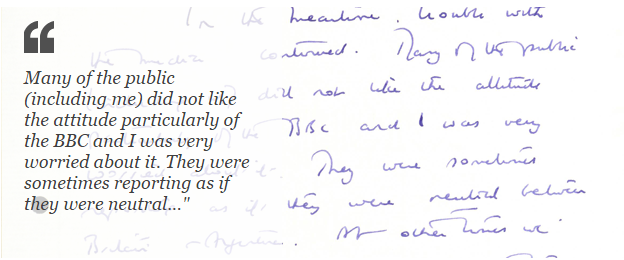 In the meantime, trouble with
the media continued. Many of the public
did not like the attitude
BBC and I was very
They were sometimes
as if they were neutral between
Britain - Argentina. At other times we
“
Many of the public
(including me) did not like
the attitude particularly of
the BBC and I was very
worried about it. They were
sometimes reporting as if
they were neutral..."